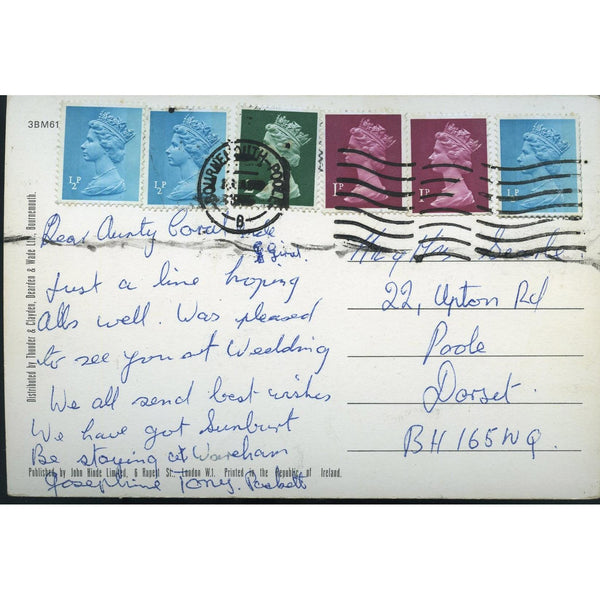 3BM61
½P
½P
1P
1P
½P
BOURNEMOUTH-POOLE
B
Dear Aunty
Just a line hoping
Alls well. Was pleased
to see you at Wedding
We all send best wishes
We have got Sunburt
Be staying at Wareham
Josephine Tony.
Mr & Mrs
22, Upton Rd
Poole
Dorset.
BH165NQ.
Distributed by Thunder & Clayden, Dearden & Wade Ltd., Bournemouth.
Published by John Hinde Limited, 6 Rupert St., London W.1. Printed in the Republic of Ireland.